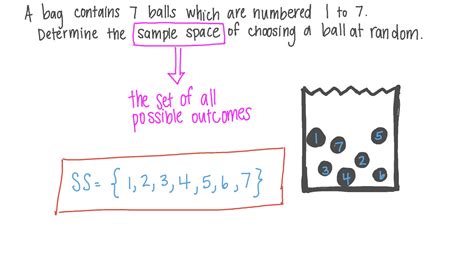 A bag contains 7 balls which are numbered 1 to 7.
Determine the sample space of choosing a ball at random.
the set of all
possible outcomes
SS= { 1,2,3,4,5,6,7}
1
7
5
2
3
4
6